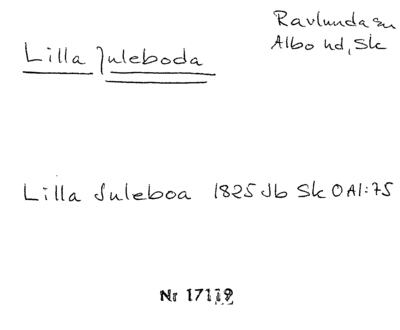 Ravlunda sn
Albo hd, Sk
Lilla Juleboda
Lilla Juleboa 1825 Jb Sk OA1:75
Nr 17119